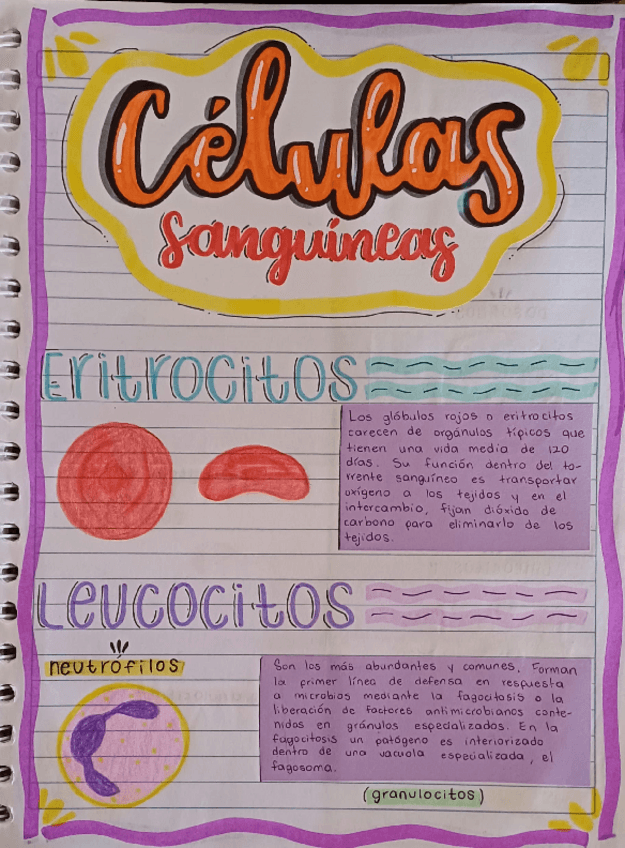 Células
Sanguíneas
Eritrocitos
Los glóbulos rojos o eritrocitos
carecen de orgánulos típicos que
tienen una vida media de 120
días. Su función dentro del to-
rrente sanguíneo es transportar
oxígeno a los tejidos y en el
intercambio, fijan dióxido de
carbono para eliminarlo de los
tejidos.
Leucocitos
neutrófilos
Son los más abundantes y comunes. Forman
la primer línea de defensa en respuesta
a microbios mediante la fagocitosis o la
liberación de factores antimicrobianos conte-
nidos en gránulos especializados. En la
fagocitosis un patógeno es interiorizado
dentro de una vacuola especializada, el
fagosoma.
(granulocitos)